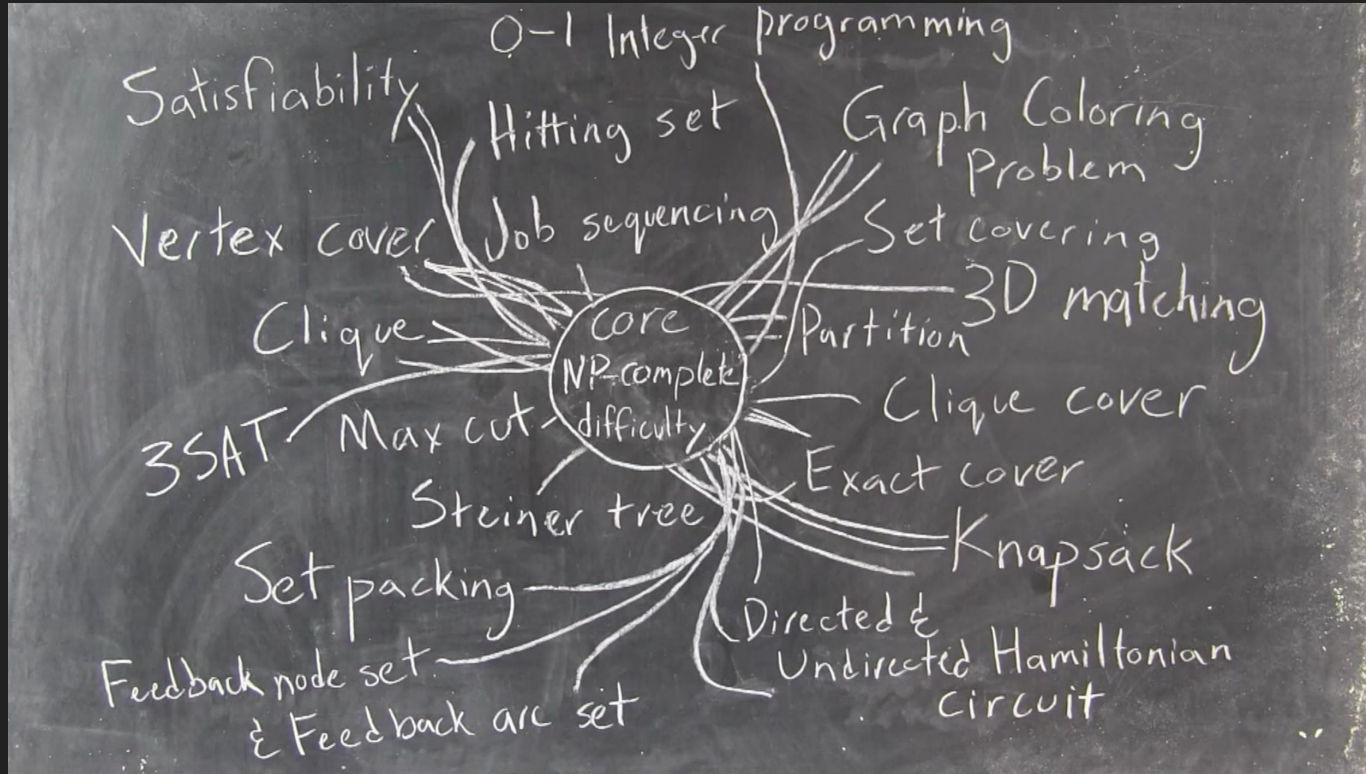 0-1 Integer programming
Satisfiability
Hitting set
Graph Coloring
Problem
Vertex cover
Job sequencing
Set covering
3D matching
Clique
core
NP-complete
difficulty
Partition
Clique cover
3SAT
Max cut
Exact cover
Steiner tree
Knapsack
Set packing
Directed &
Undirected Hamiltonian
Circuit
Feedback node set
& Feedback arc set